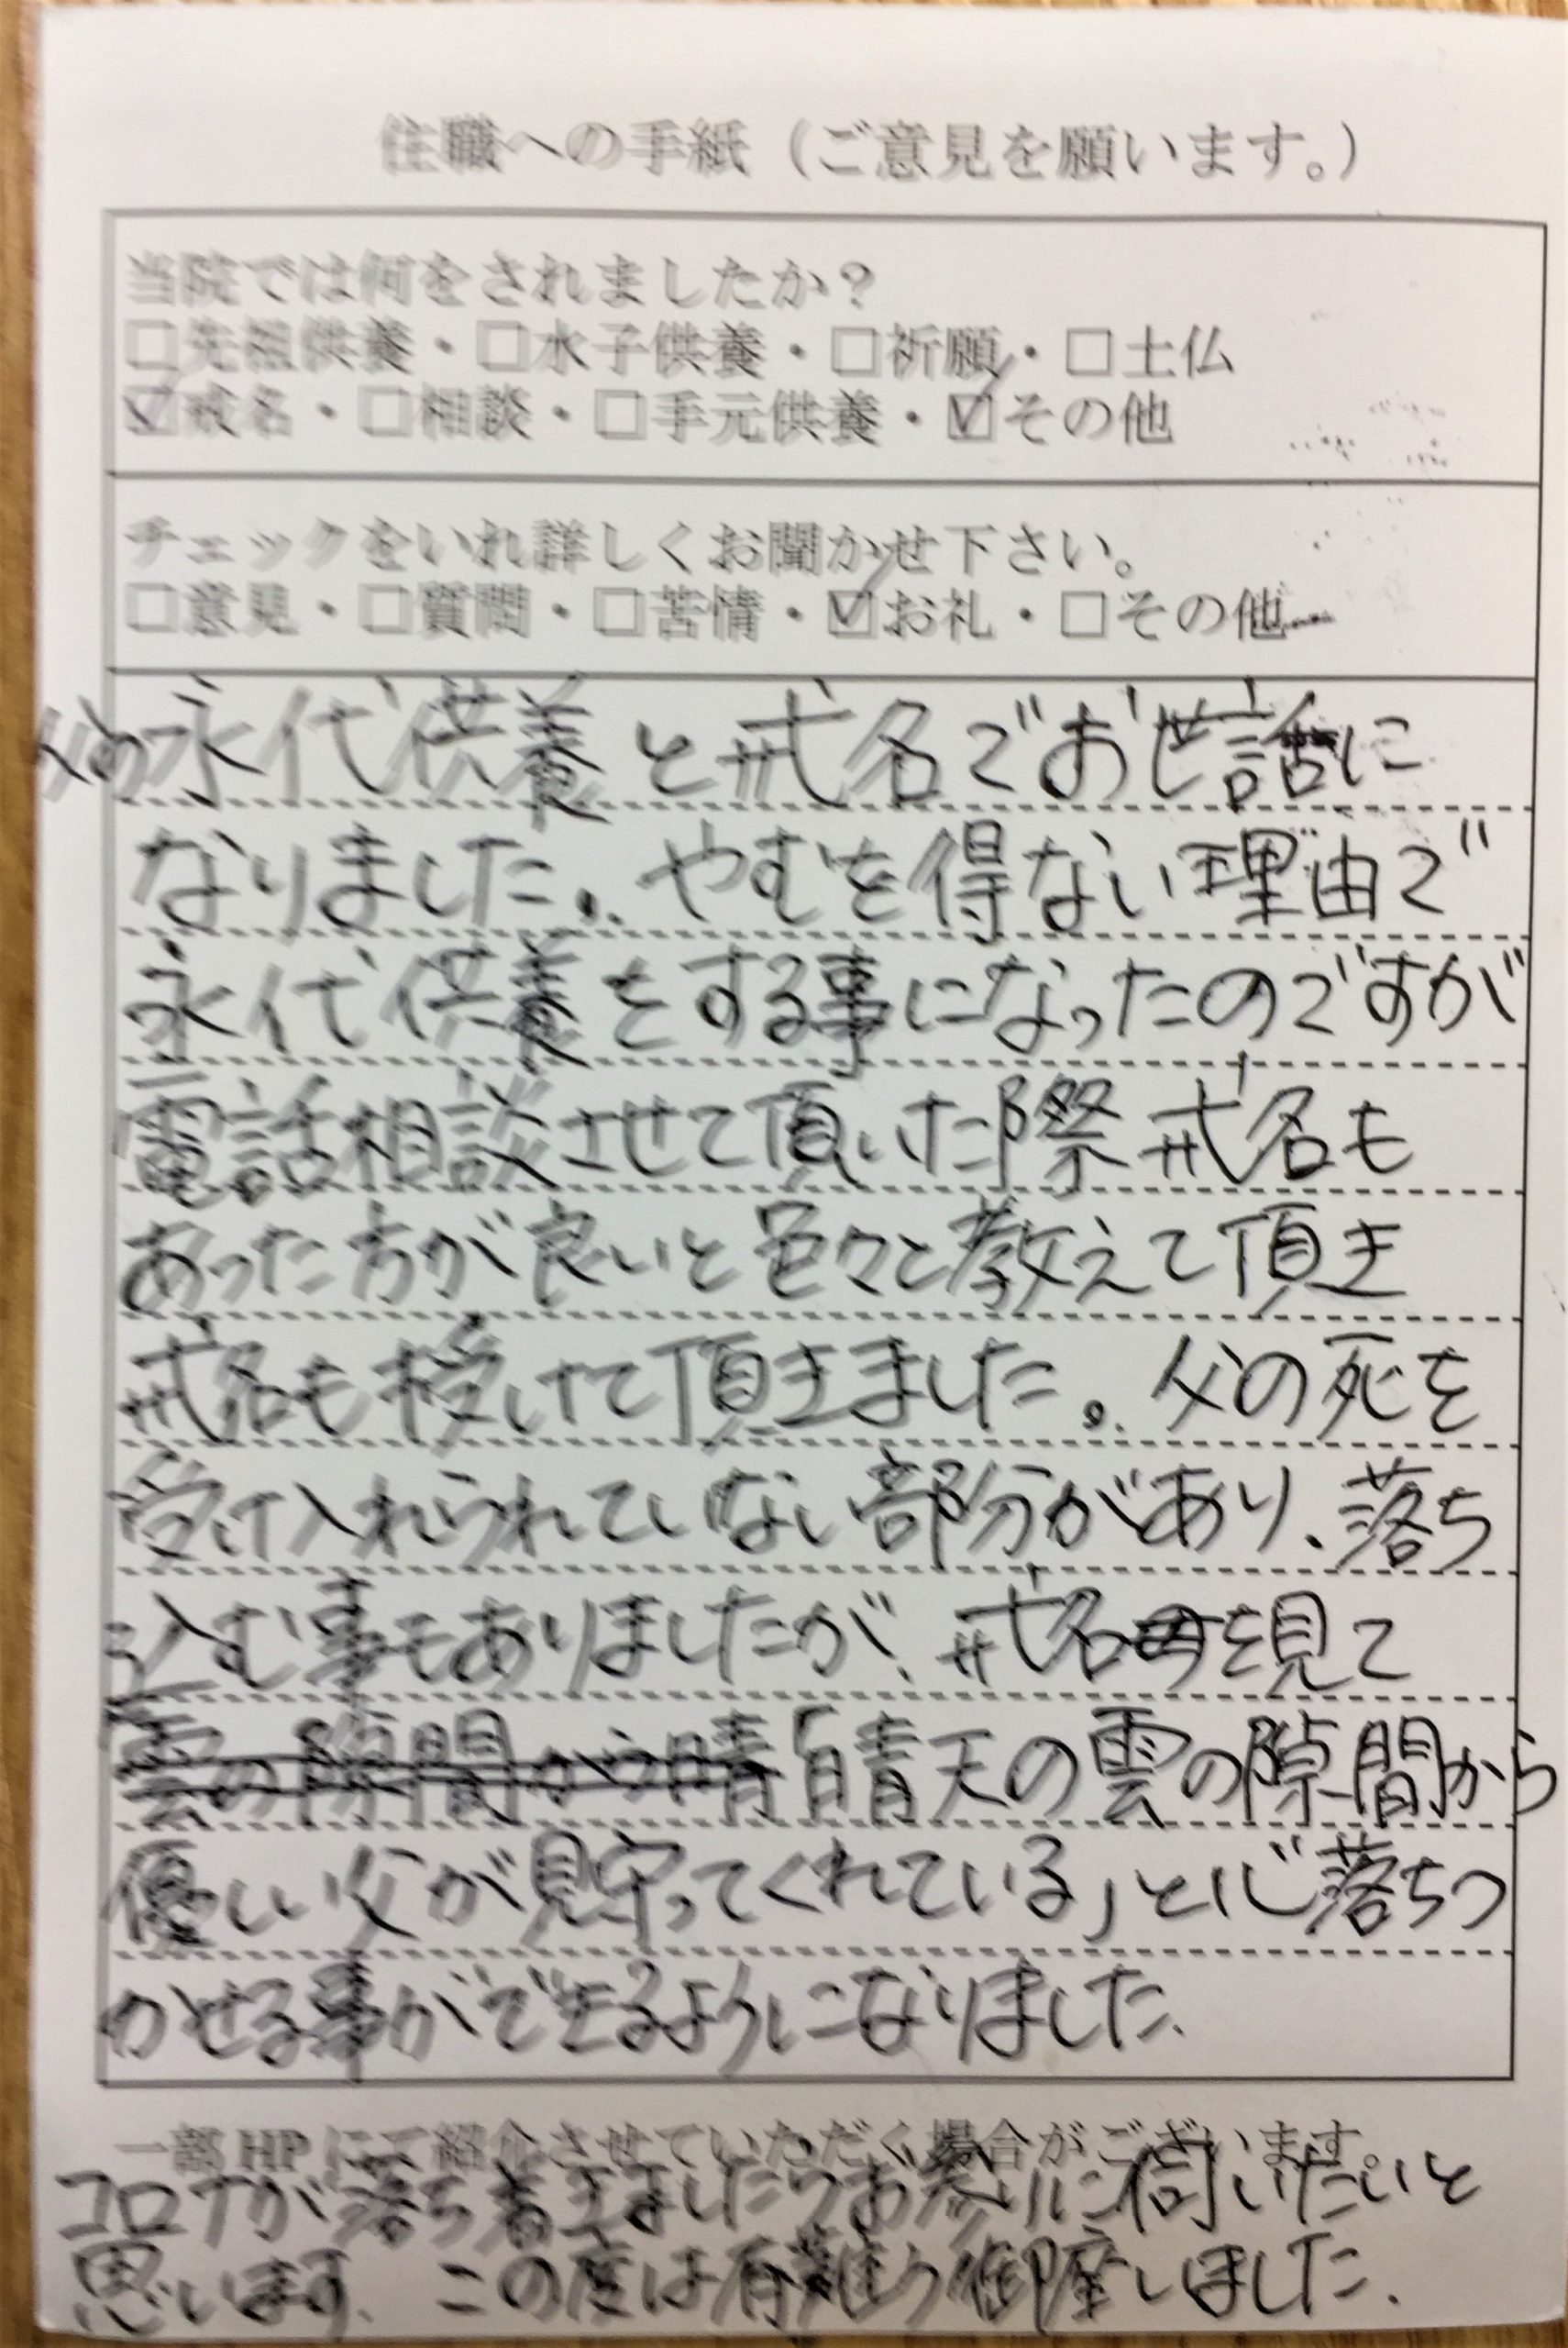 住職への手紙（ご意見を願います。）
当院では何をされましたか？
□先祖供養・□水子供養・□祈願・□土仏
☑戒名・□相談・□手元供養・☑その他
チェックをいれ詳しくお聞かせ下さい。
□意見・□質問・□苦情・☑お礼・□その他
父の永代供養と戒名でお世話に
なりました。やむを得ない理由で
永代供養をする事になったのですが
電話相談させて頂いた際戒名も
あった方が良いと色々と教えて頂き
戒名も授けて頂きました。父の死を
受け入れられていない部分があり、落ち
込む事もありましたが、戒名を見て
雲の隙間から晴「晴天の雲の隙間から
優しい父が見守ってくれている」と心落ちつ
かせる事ができるようになりました。
一部HPにて紹介させていただく場合がございます。
コロナが落ち着きましたらお参りに伺いたいと
思います。この度は有難う御座いました。